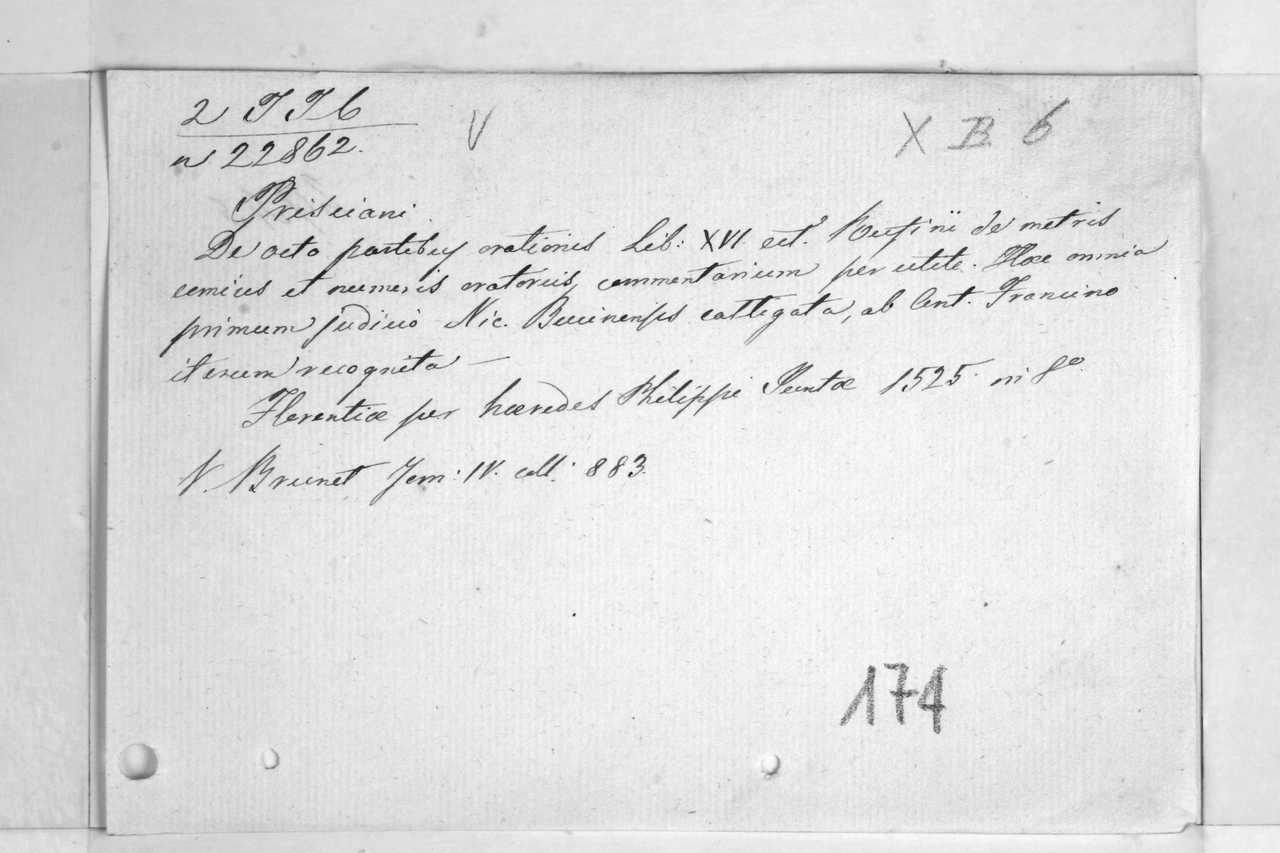 2 T T 6
V
X B 6
n 22862.
Prisciani.
De octo partibus orationis Lib: XVI ect. Rufinii de metris
comicis et numeris oratoriis, commentarium per utile. Hæc omnia
primum judicio Nic. Buccinensis castigata, ab Ant. Francino
iterum recognita —
Florentiæ per hæredes Philippi Juntæ 1525. in 8º
V. Brunet Tom: IV. coll: 883.
174